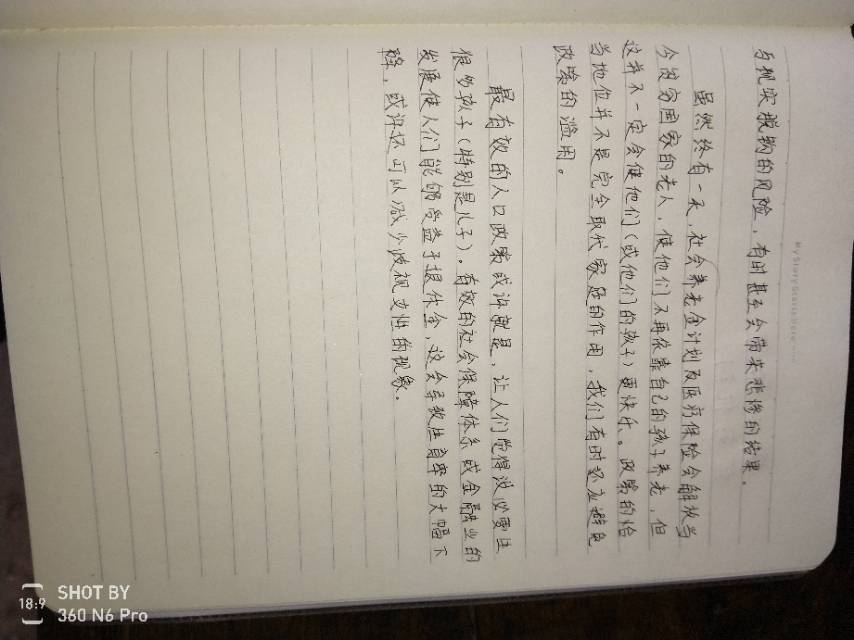 My Story Starts here
与现实脱钩的风险,有时甚至会带来悲惨的结果。
虽然终有一天,社会养老金计划及医疗保险会解放当
今贫穷国家的老人,使他们不再依靠自己的孩子养老,但
这并不一定会使他们(或他们的孩子)更快乐。政策的恰
当地位并不是完全取代家庭的作用,我们有时还应避免
政策的滥用。
最有效的人口政策或许就是,让人们觉得没必要生
很多孩子(特别是儿子)。有效的社会保障体系或金融业的
发展使人们能够受益于退休金,这会导致生育率的大幅下
降,或许还可以减少歧视女性的现象。
18:9
SHOT BY
360 N6 Pro